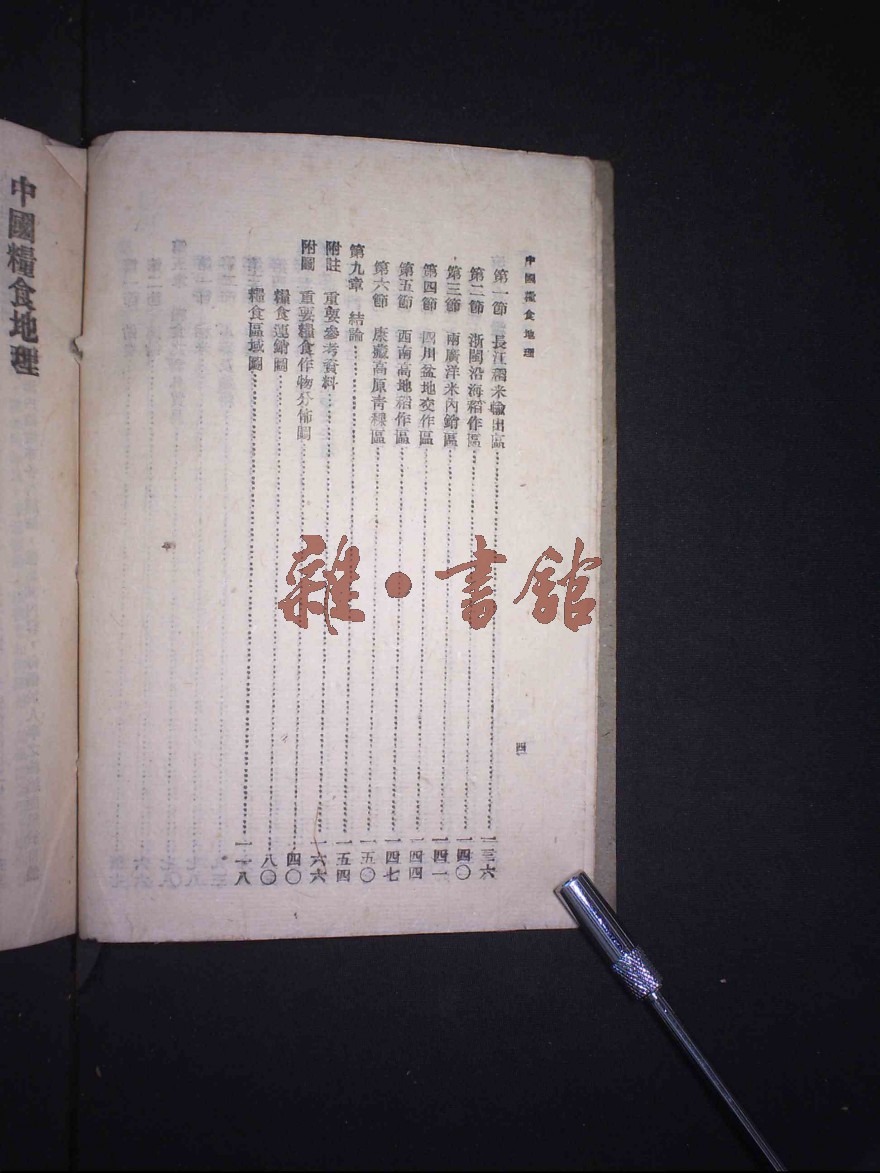 中國糧食地理
四
第一節　長江稻米輸出區……一三六
第二節　浙閩沿海稻作區……一四〇
第三節　兩廣洋米內銷區……一四一
第四節　四川盆地交作區……一四四
第五節　西南高地稻作區……一四七
第六節　康藏高原靑稞區……一五〇
第九章　結論……一五四
附註　重要參考資料……一六六
附圖　重要糧食作物分佈圖……四〇
糧食運銷圖……八〇
糧食區域圖……一一八
中國糧食地理
雜·書館